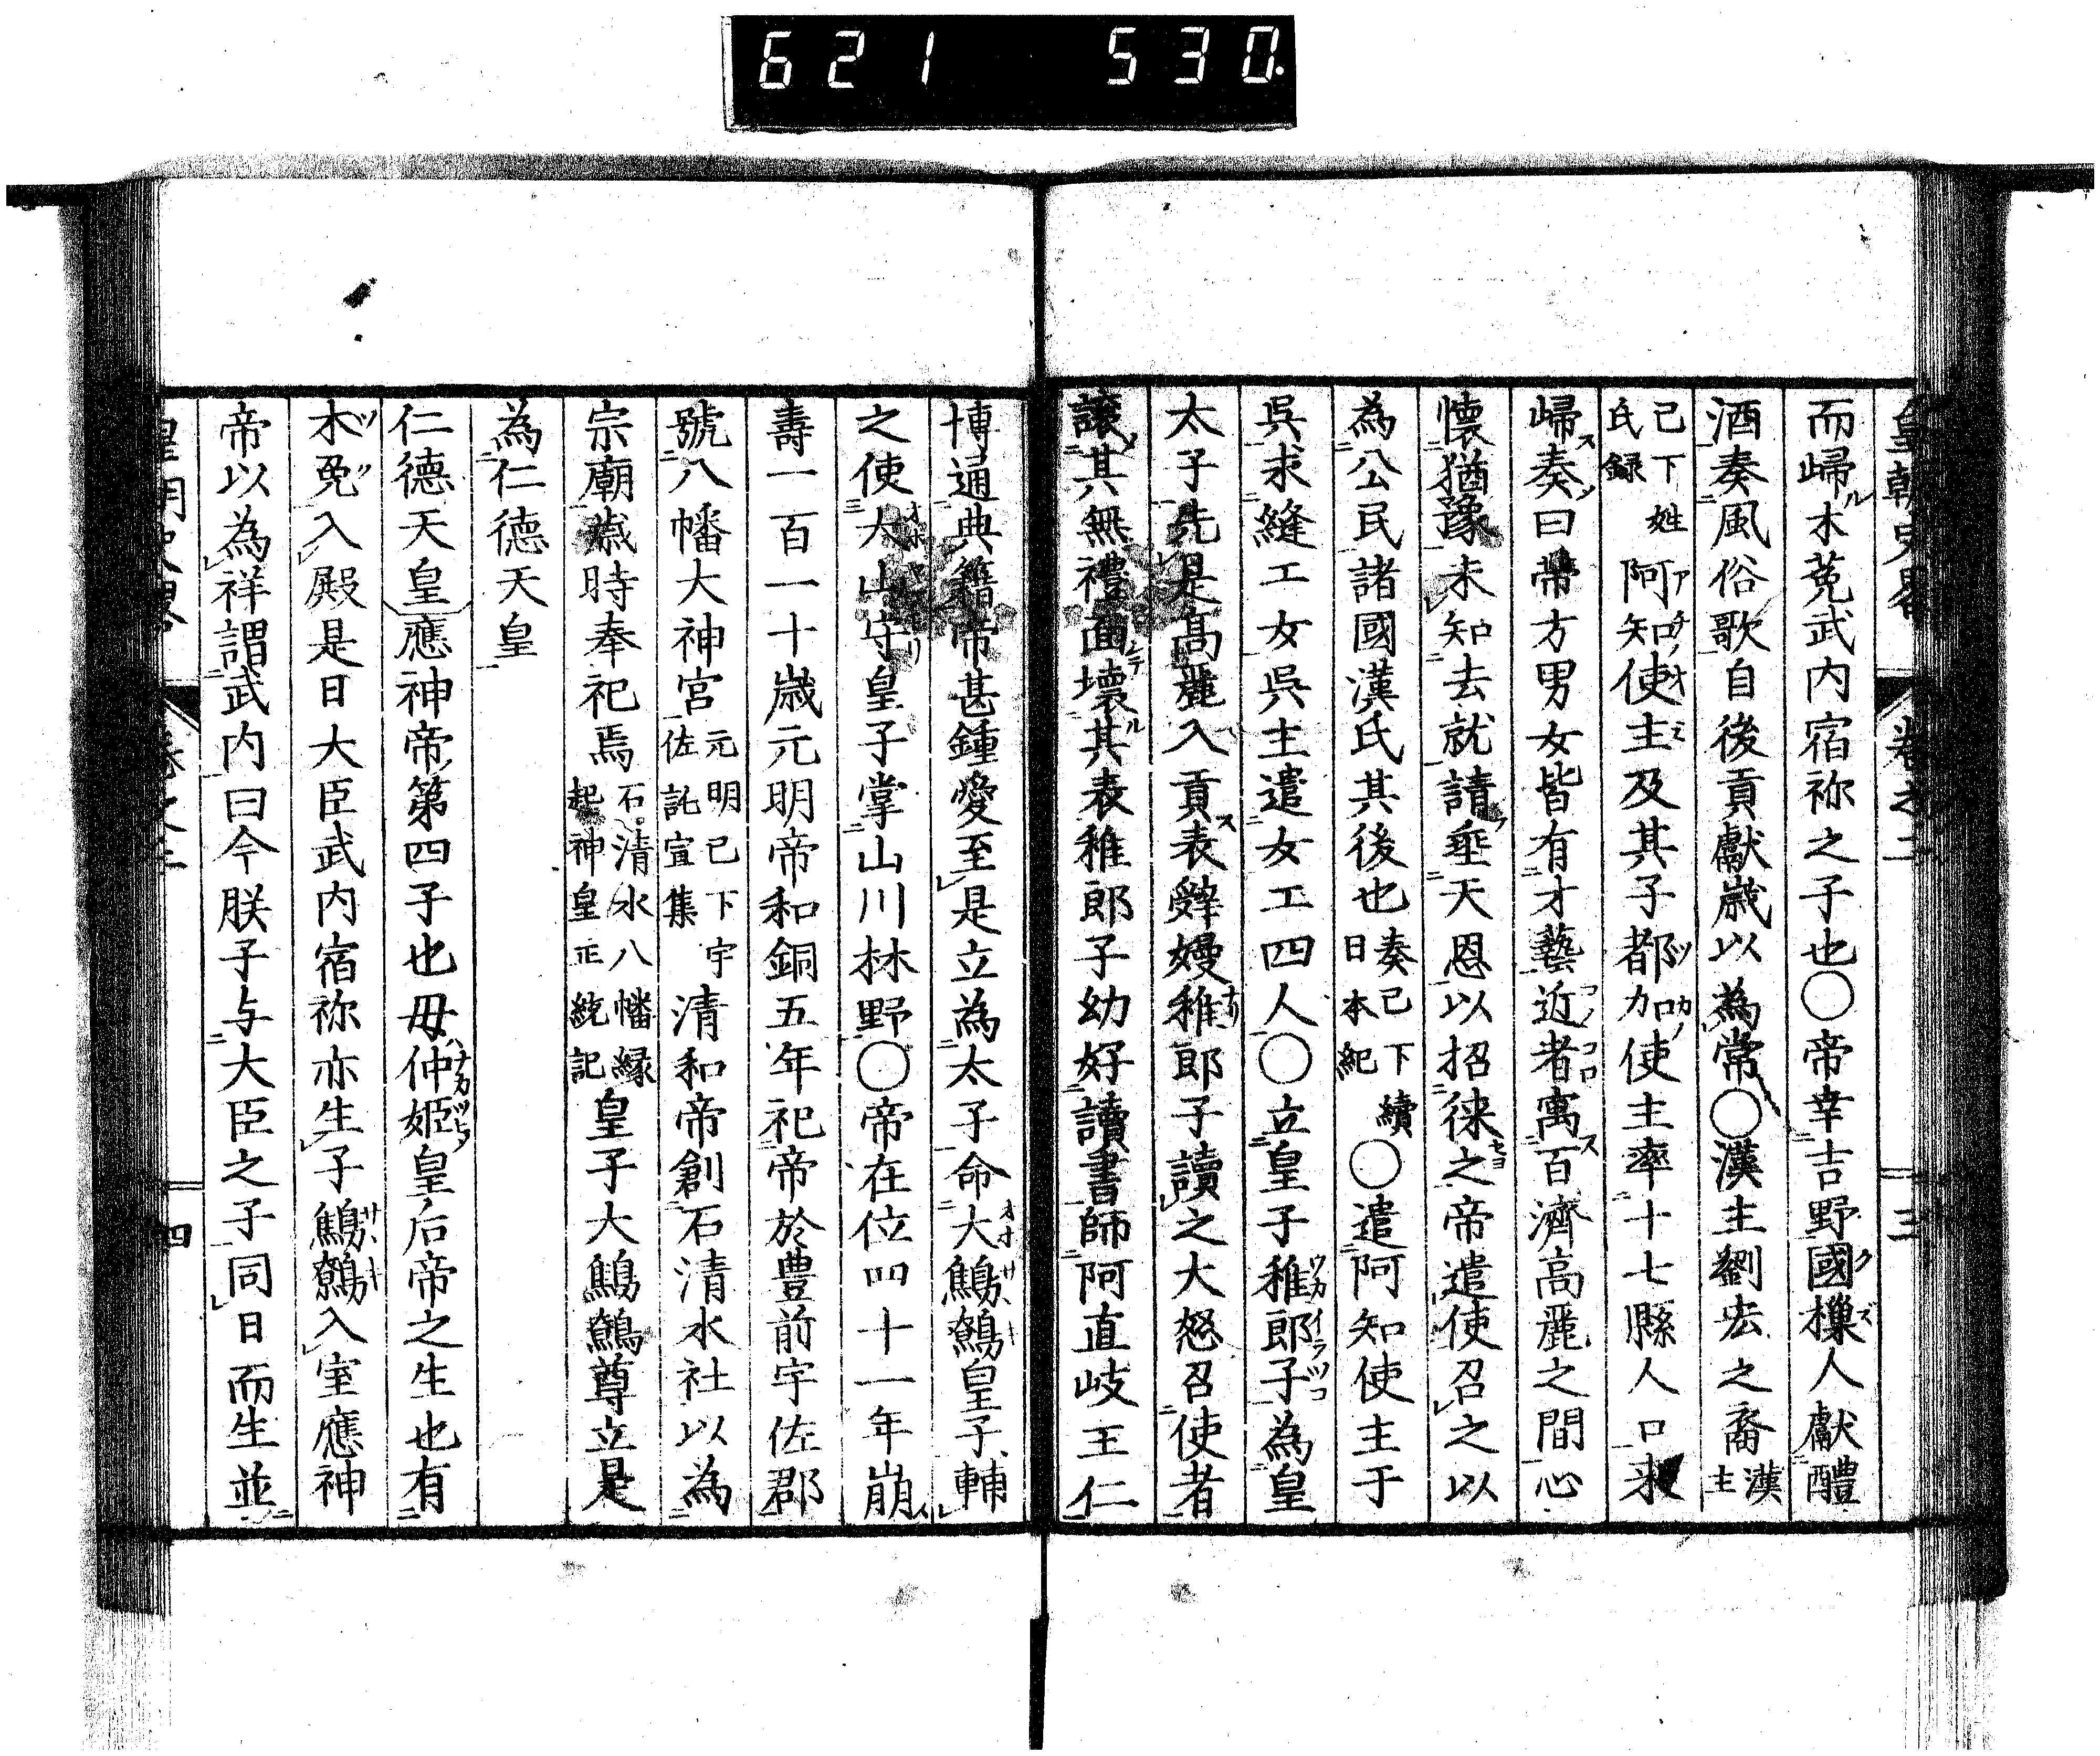 621 530.
皇朝史畧 卷之二 三
而歸木莵武内宿祢之子也〇帝幸吉野國樔人獻醴
酒奏風俗歌自後貢獻歳以為常〇漢主劉宏之裔漢主
已下姓氏録阿知使主及其子都加使主率十七縣人口来
歸奏曰帶方男女皆有才藝近者寓百濟高麗之間心
懐猶豫未知去就請垂天恩以招徠之帝遣使召之以
為公民諸國漢氏其後也奏已下續日本紀〇遣阿知使主于
呉求縫工女呉主遣女工四人〇立皇子稚郎子為皇
太子先是高麗入貢表辭嫚稚郎子讀之大怒召使者
譲其無禮面壊其表稚郎子幼好讀書師阿直岐王仁
博通典籍帝甚鍾愛至是立為太子命大鷦鷯皇子輔
之使大山守皇子掌山川林野〇帝在位四十一年崩
壽一百一十歳元明帝和銅五年祀帝於豊前宇佐郡
號八幡大神宮元明已下宇佐託宣集清和帝創石清水社以為
宗廟歳時奉祀焉石清水八幡縁起神皇正統記皇子大鷦鷯尊立是
為仁德天皇
仁德天皇應神帝第四子也母仲姫皇后帝之生也有
木兎入殿是日大臣武内宿祢亦生子鷦鷯入室應神
帝以為祥謂武内曰今朕子与大臣之子同日而生並
四